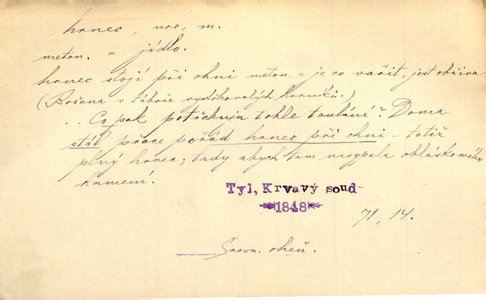 hrnec, nce, m.
meton. = jídlo.
hrnec stojí při ohni meton. = je co vařit, jest obživa
(Božena v táboře vyštvoraných havířů)
... Co pak potřebuju tohle toulání? Doma
stál prace pořád hrnec při ohni - totiž
plný hrnec; tady abych tam nasypala obláskového
kamení.
Tyl, Krvavý soud
1848
71, 14.
Srovn. oheň.